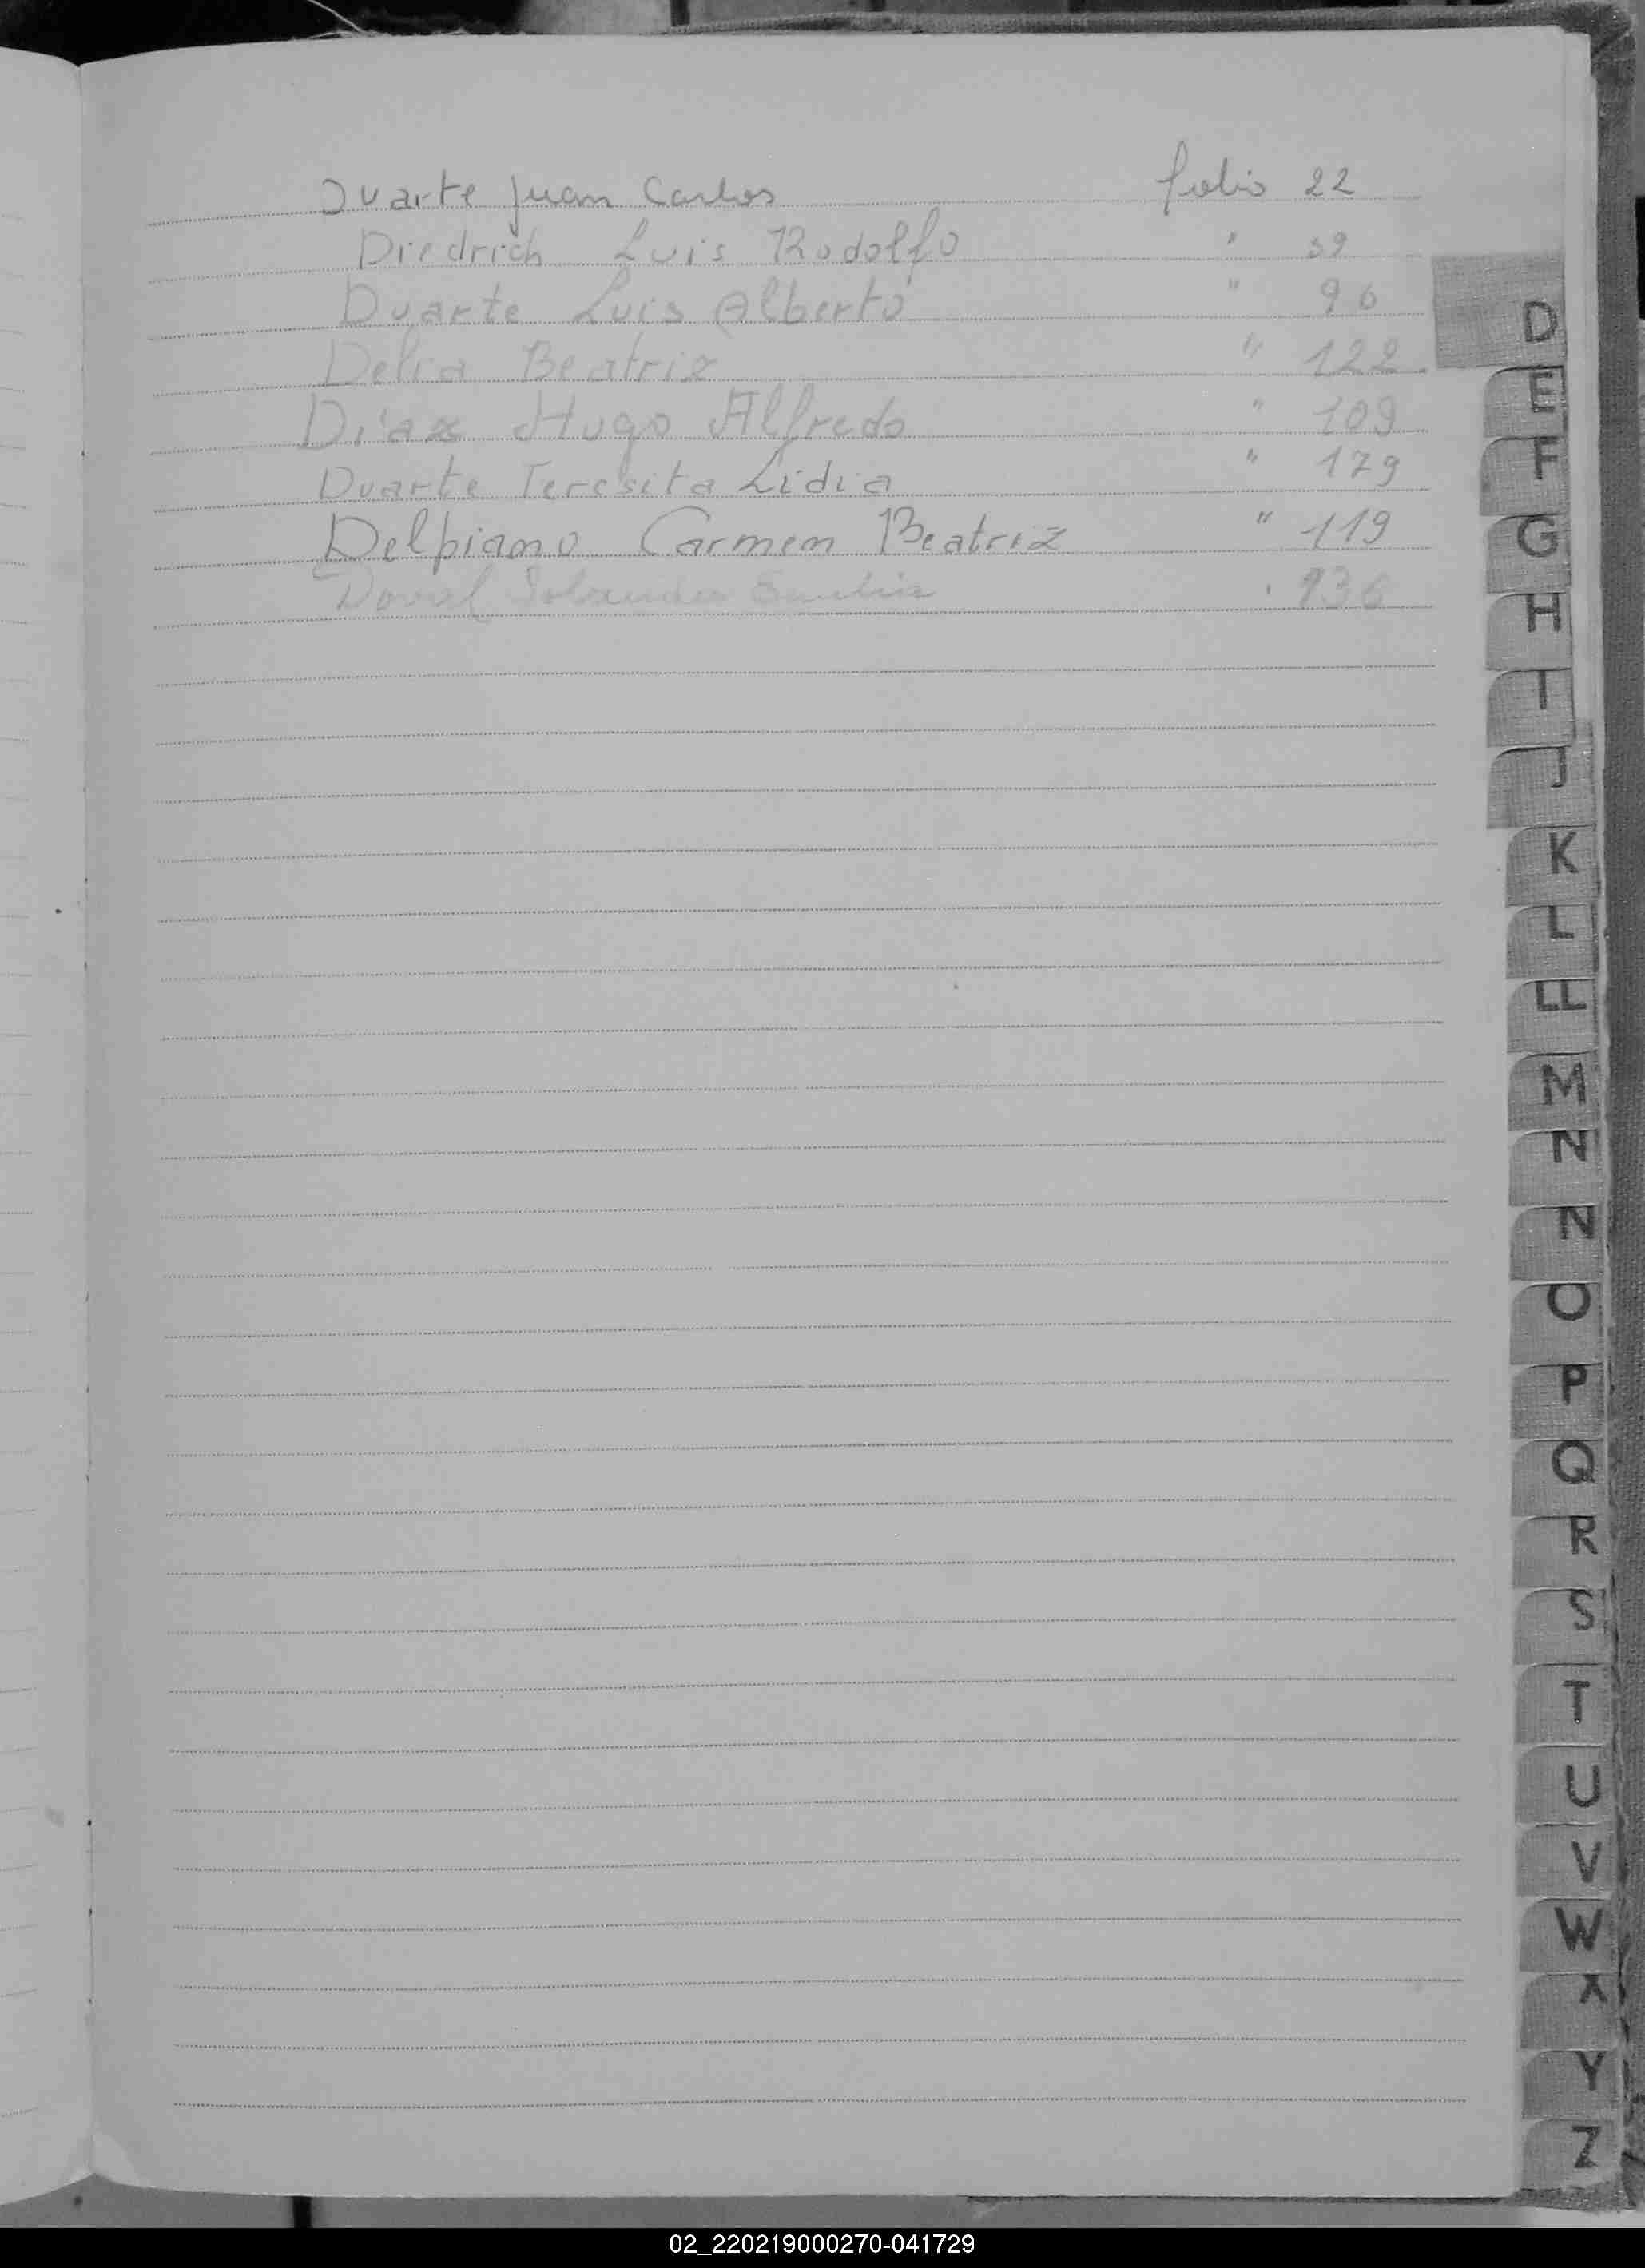 Duarte Juan Carlos folio 22
Diedrich Luis Rodolfo " 39
Duarte Luis Alberto " 96
Delia Beatriz " 122
Díaz Hugo Alfredo " 109
Duarte Teresita Lidia " 179
Delpiano Carmen Beatriz " 119
Doval Emilia 136
D
E
F
G
H
I
J
K
L
LL
M
N
N
O
P
Q
R
S
T
U
V
W
X
Y
Z
02_220219000270-041729